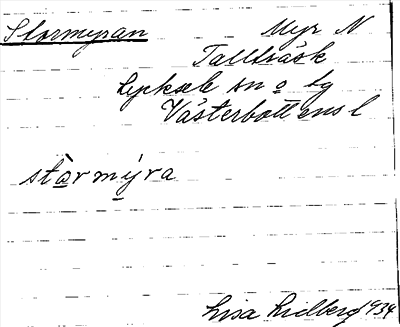 Stormyran Myr N
Tallträsk
Lycksele sn o by
Västerbottens l
stòrmýra
Lisa Lidberg 1934